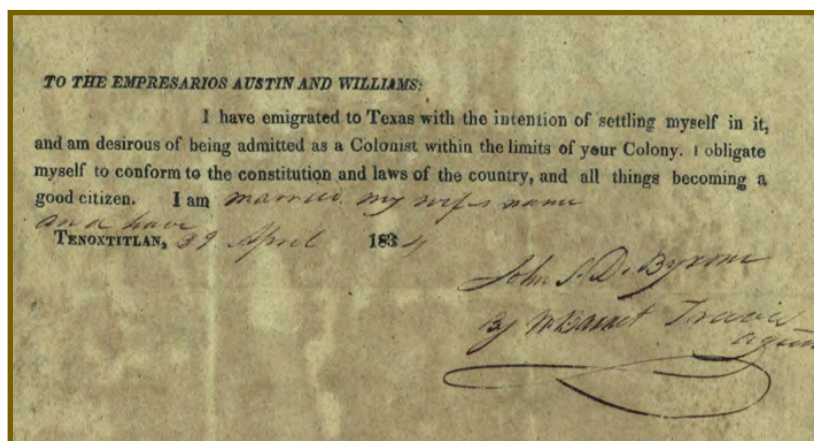 TO THE EMPRESARIOS AUSTIN AND WILLIAMS:
I have emigrated to Texas with the intention of settling myself in it,
and am desirous of being admitted as a Colonist within the limits of your Colony. I obligate
myself to conform to the constitution and laws of the country, and all things becoming a
good citizen. I am married my wifes name
and have
TENOXTITLAN, 29 April 1834
John S. D. Byrom
By W Barret Travis
agent